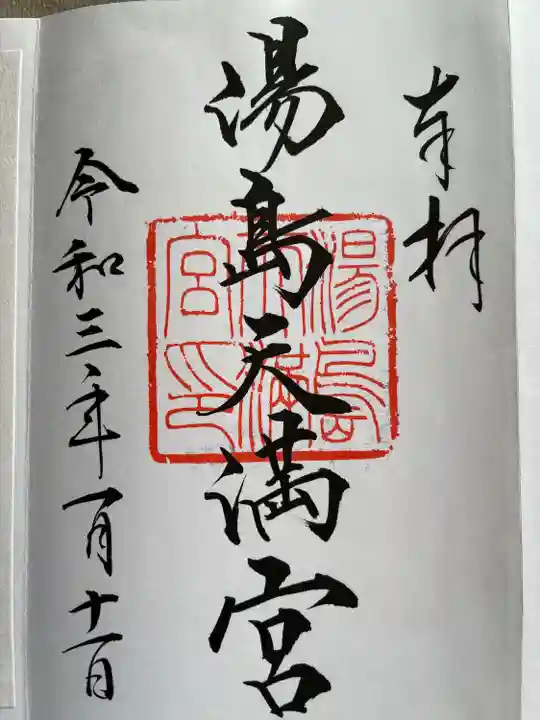 奉拝
湯島天満宮
湯島
天満
宮印
令和三年一月十一日